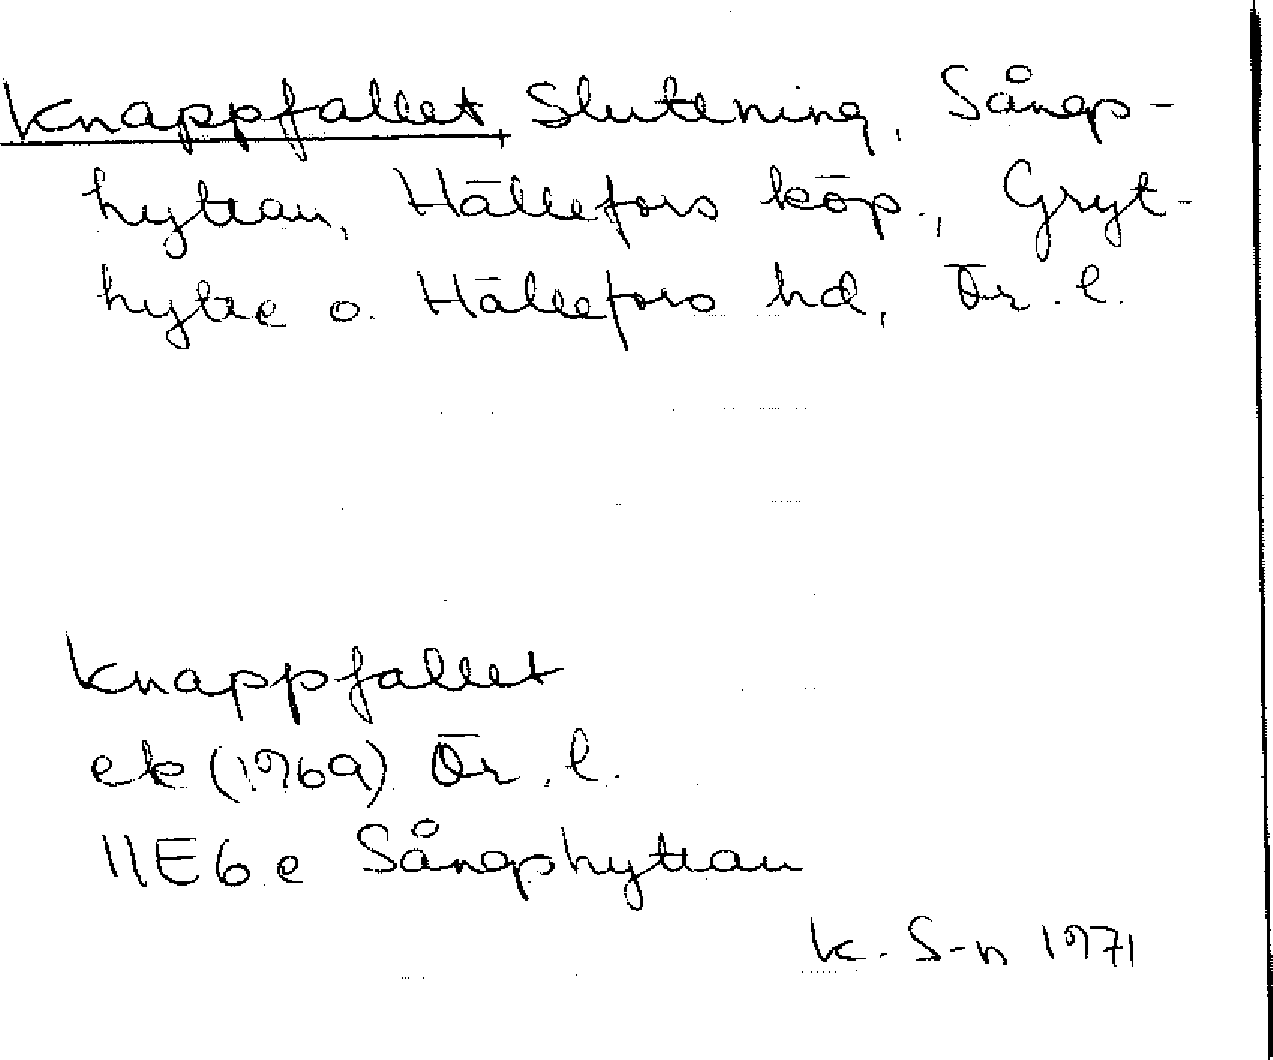 Knappfallet, Sluttning, Sångs-
hyttan, Hällefors köp., Gryt-
hytte o. Hällefors hd, Ör. l.
Knappfallet
ek (1969) Ör. l.
11E6e Sångshyttan
K. S-n 1971